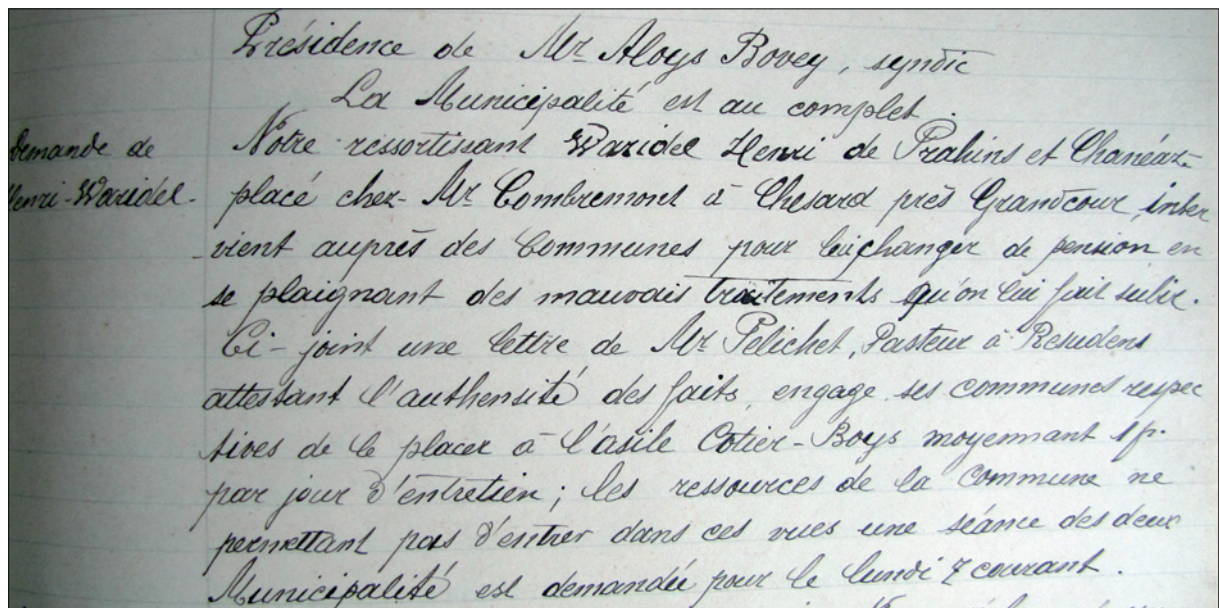 Présidence de Mr Aloys Bovey, syndic
La Municipalité est au complet.
Demande de
Henri Waridel.
Notre ressortissant Waridel Henri de Prahins et Chanéaz
placé chez Mr Combremont à Chesard près Grandcour, inter
-vient auprès des Communes pour lui changer de pension en
se plaignant des mauvais traitements qu'on lui fait subir.
Ci-joint une lettre de Mr Pelichet, Pasteur à Ressudens
attestant l'authensité des faits, engage ses communes respec
tives de le placer à l'asile Cotier-Boys moyennant 1 fr.
par jour d'entretien ; les ressources de la Commune ne
permettant pas d'entrer dans ces vues une séance des deux
Municipalité est demandée pour le lundi 7 courant.